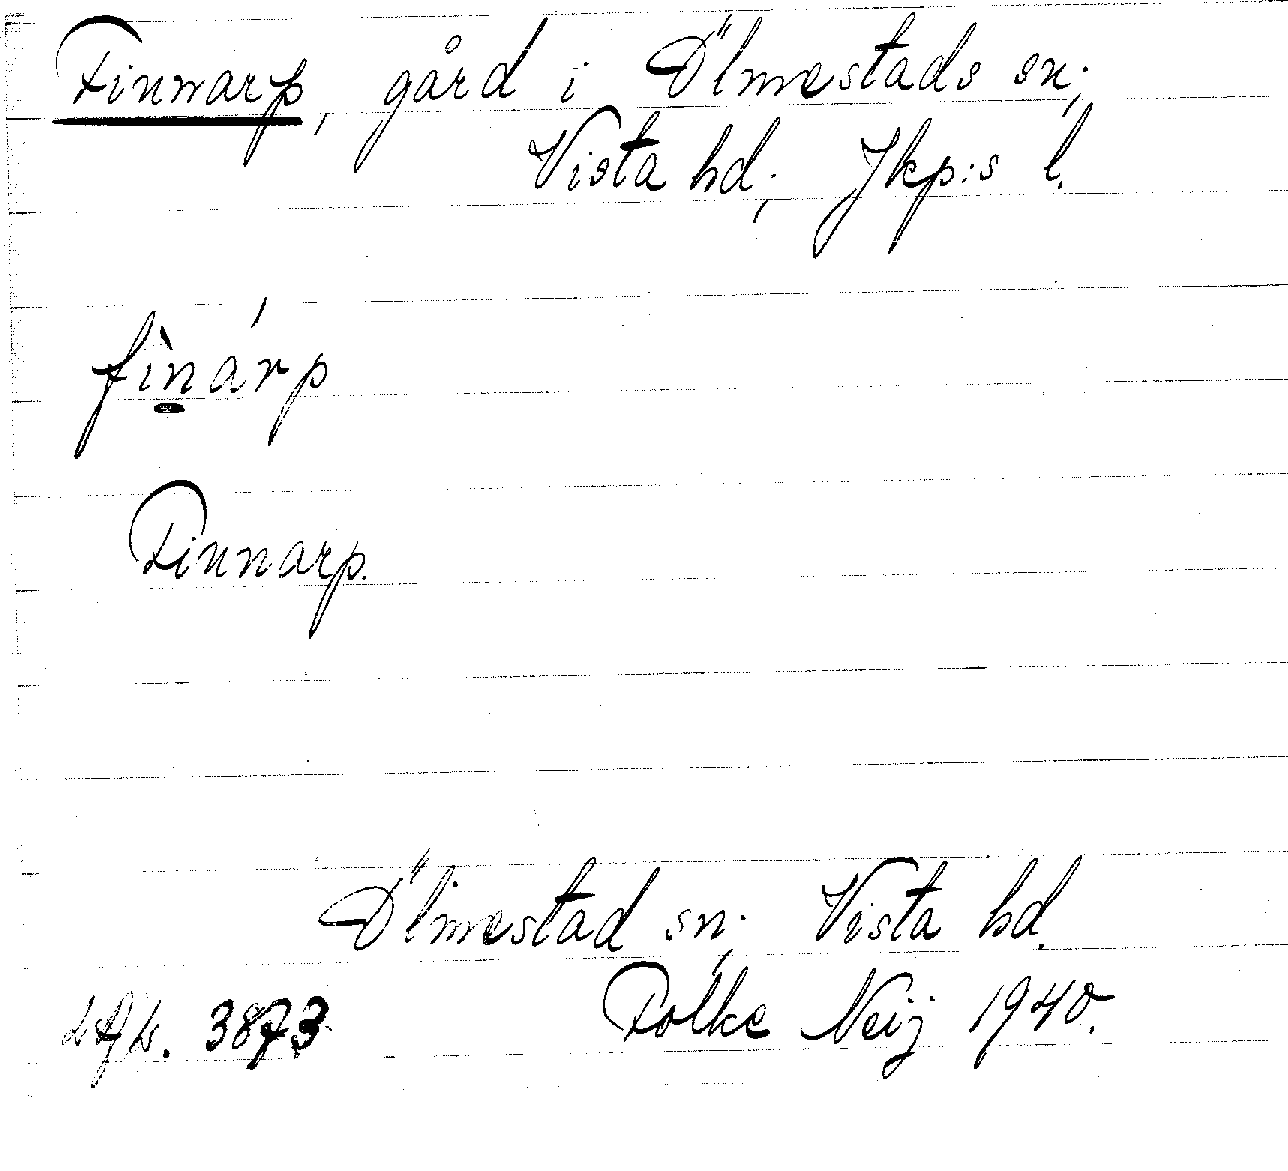 Finnarp, gård i Ölmestads sn;
Vista hd; Jkp:s l.
fìnárp
Finnarp.
Ölmestad sn; Vista hd.
3873 Folke Neij 1940.